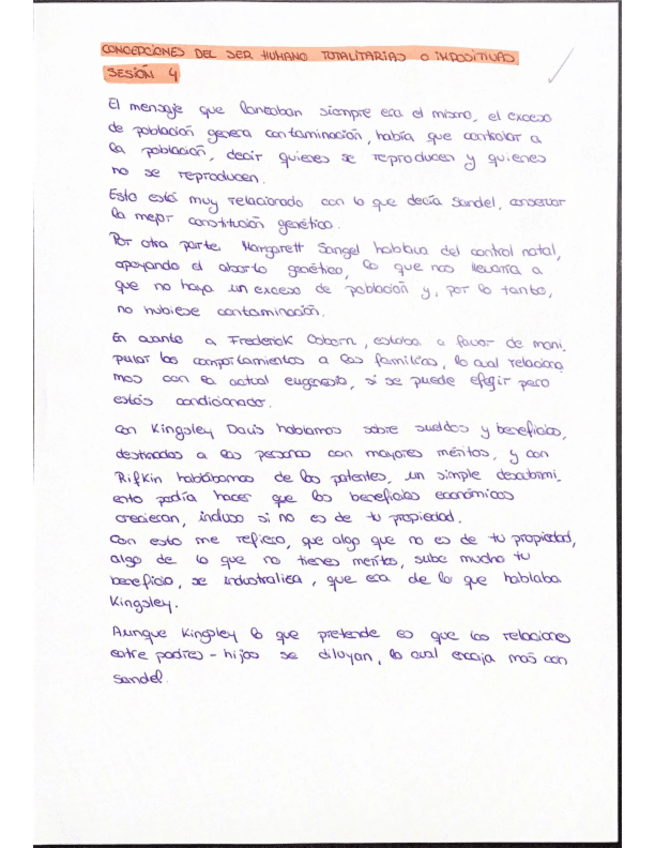 CONCEPCIONES DEL SER HUMANO TOTALITARIAS O IMPOSITIVAS
SESIÓN 4
El mensaje que lanzaban siempre era el mismo, el exceso
de población genera contaminación, había que controlar a
la población, decir quienes se reproducen y quienes
no se reproducen.
Esto está muy relacionado con lo que decía Sandel, conservar
la mejor constitución genética.
Por otra parte Margarett Sangel hablaba del control natal,
apoyando el aborto genético, lo que nos llevaría a
que no haya un exceso de población y, por lo tanto,
no hubiese contaminación.
En cuanto a Frederick Osborn, estaba a favor de mani
pular los comportamientos a las familias, lo cual relaciona
mos con la actual eugenesia, si se puede elegir pero
estás condicionado.
Con Kingsley Davis hablamos sobre sueldos y beneficios,
destinados a las personas con mayores méritos, y con
Rifkin hablábamos de las patentes, un simple descubrimi
ento podía hacer que los beneficios económicos
creciesen, incluso si no es de tu propiedad.
Con esto me refiero, que algo que no es de tu propiedad,
algo de lo que no tienes meritos, sube mucho tu
beneficio, se industraliza, que era de lo que hablaba
Kingsley.
Aunque Kingsley lo que pretende es que las relaciones
entre padres - hijos se diluyan, lo cual encaja más con
Sandel.